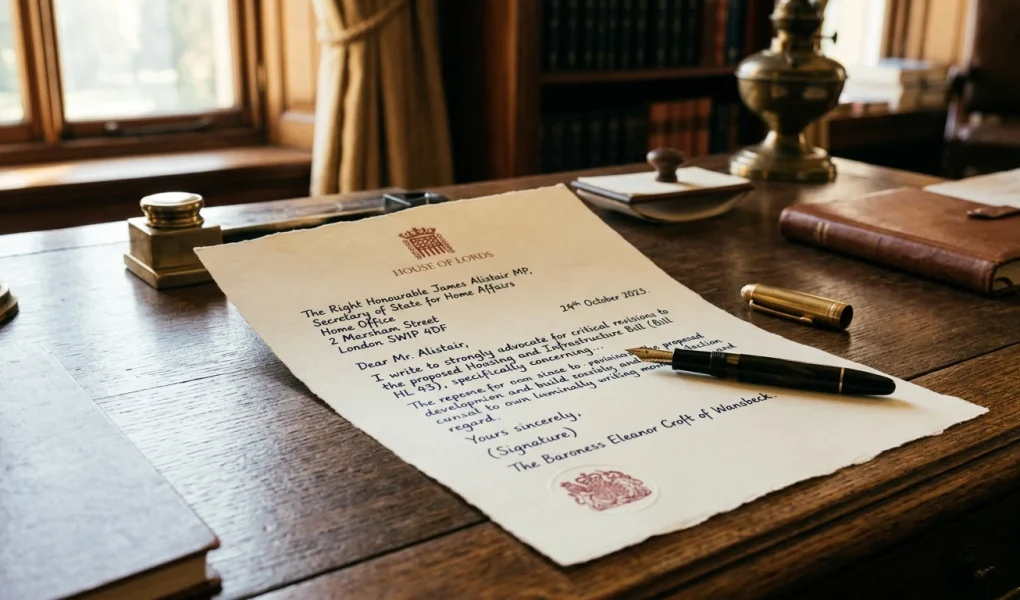 HOUSE OF LORDS
The Right Honourable James Alistair MP,
Secretary of State for Home Affairs
Home Office
2 Mersham Street
London SW1P 4DF
24th October 2023.
Dear Mr. Alistair,
I write to strongly advocate for critical revisions to
the proposed Housing and Infrastructure Bill (Bill
HL 43), specifically concerning...
The reporme for own since to the proposed
developmion and build and and
cunsal to own luminally writing
regard.
Yours sincerely,
(Signature)
The Baroness Eleanor Croft of Wansbeck.